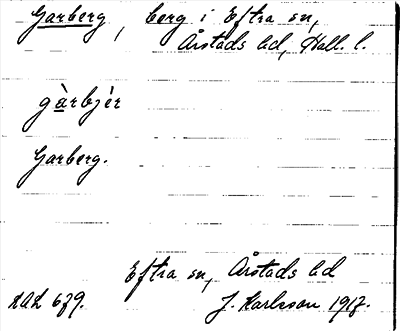 Garberg, berg i Eftra sn,
Årstads hd, Hall. l.
gàrbjèr
Garberg.
Eftra sn, Årstads hd
J. Karlsson 1917.